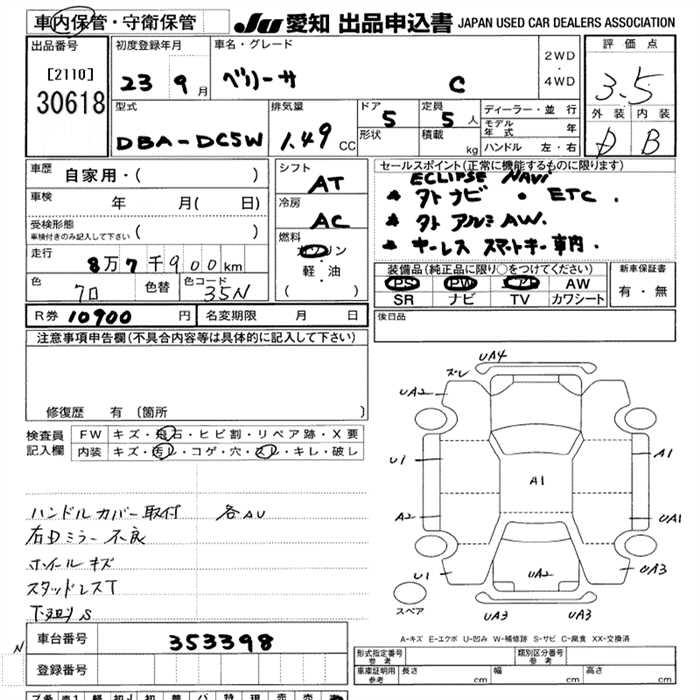 車内保管・守衛保管
JU 愛知 出品申込書 JAPAN USED CAR DEALERS ASSOCIATION
出品番号
[2110]
30618
初度登録年月
23 9 月
車名・グレード
ベリーサ C
2WD
・
4WD
評価点
3.5
外装 内装
D B
型式
DBA-DC5W
排気量
1.49 CC
ドア
5
形状
定員
5 人
積載
kg
ディーラー・並行
モデル年式 年
ハンドル 左・右
車歴 自家用・( )
車検 年 月( 日)
受検形態
車検付きのみ記入して下さい ( )
走行 8万7千900km
色 クロ
色替
色コード 35N
R券 10900 円
名変期限 月 日
シフト
AT
冷房
AC
燃料
ガソリン
・
軽・油
( )
セールスポイント(正常に機能するものに限ります)
ECLIPSE NAVi
ナビ ・ ETC .
アルミ AW.
キーレス スマートキー 車内 .
装備品(純正品に限り○をつけてください)
PS PW エアB AW
SR ナビ TV カワシート
新車保証書
有・無
後日品
注意事項申告欄(不具合内容等は具体的に記入して下さい)
修復歴 有 (箇所 )
検査員
記入欄
FW キズ・飛石・ヒビ割・リペア跡・X要
内装 キズ・汚レ・コゲ・穴・スレ・キレ・破レ
ハンドルカバー取付 各AU
右Dミラー不良
ホイールキズ
スタッドレスT
下廻りS
UA4
ズレ
UA2
U1
A2
U1
A1
A1
UA1
UA2
UA3
UA3
UA3
スペア
A-キズ E-エクボ U-凹み W-補修跡 S-サビ C-腐食 XX-交換済
N
車台番号 353398
登録番号
形式指定番号
参考
類別区分番号
参考
車庫証明用
参考
長さ cm 幅 cm 高さ cm